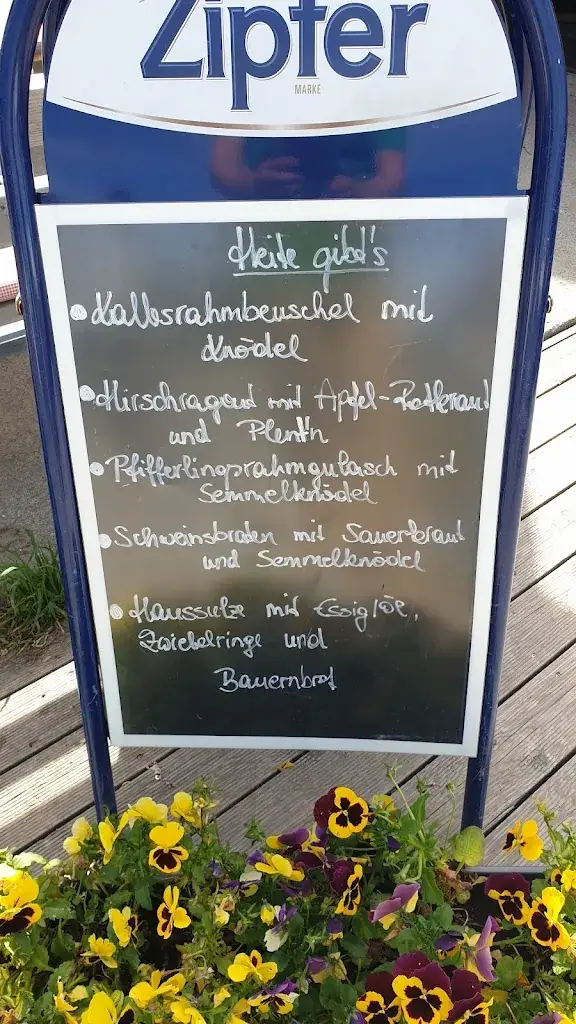 Zipfer
MARKE
Heite gibt's
• Kalbsrahmbeuschel mit
Knödel
• Hirschragout mit Apfel-Rotkraut
und Plent'n
• Pfifferlingsrahmgulasch mit
Semmelknödel
• Schweinsbraten mit Sauerkraut
und Semmelknödel
• Haussulze mit Essig/Öl,
Zwiebelringe und
Bauernbrot